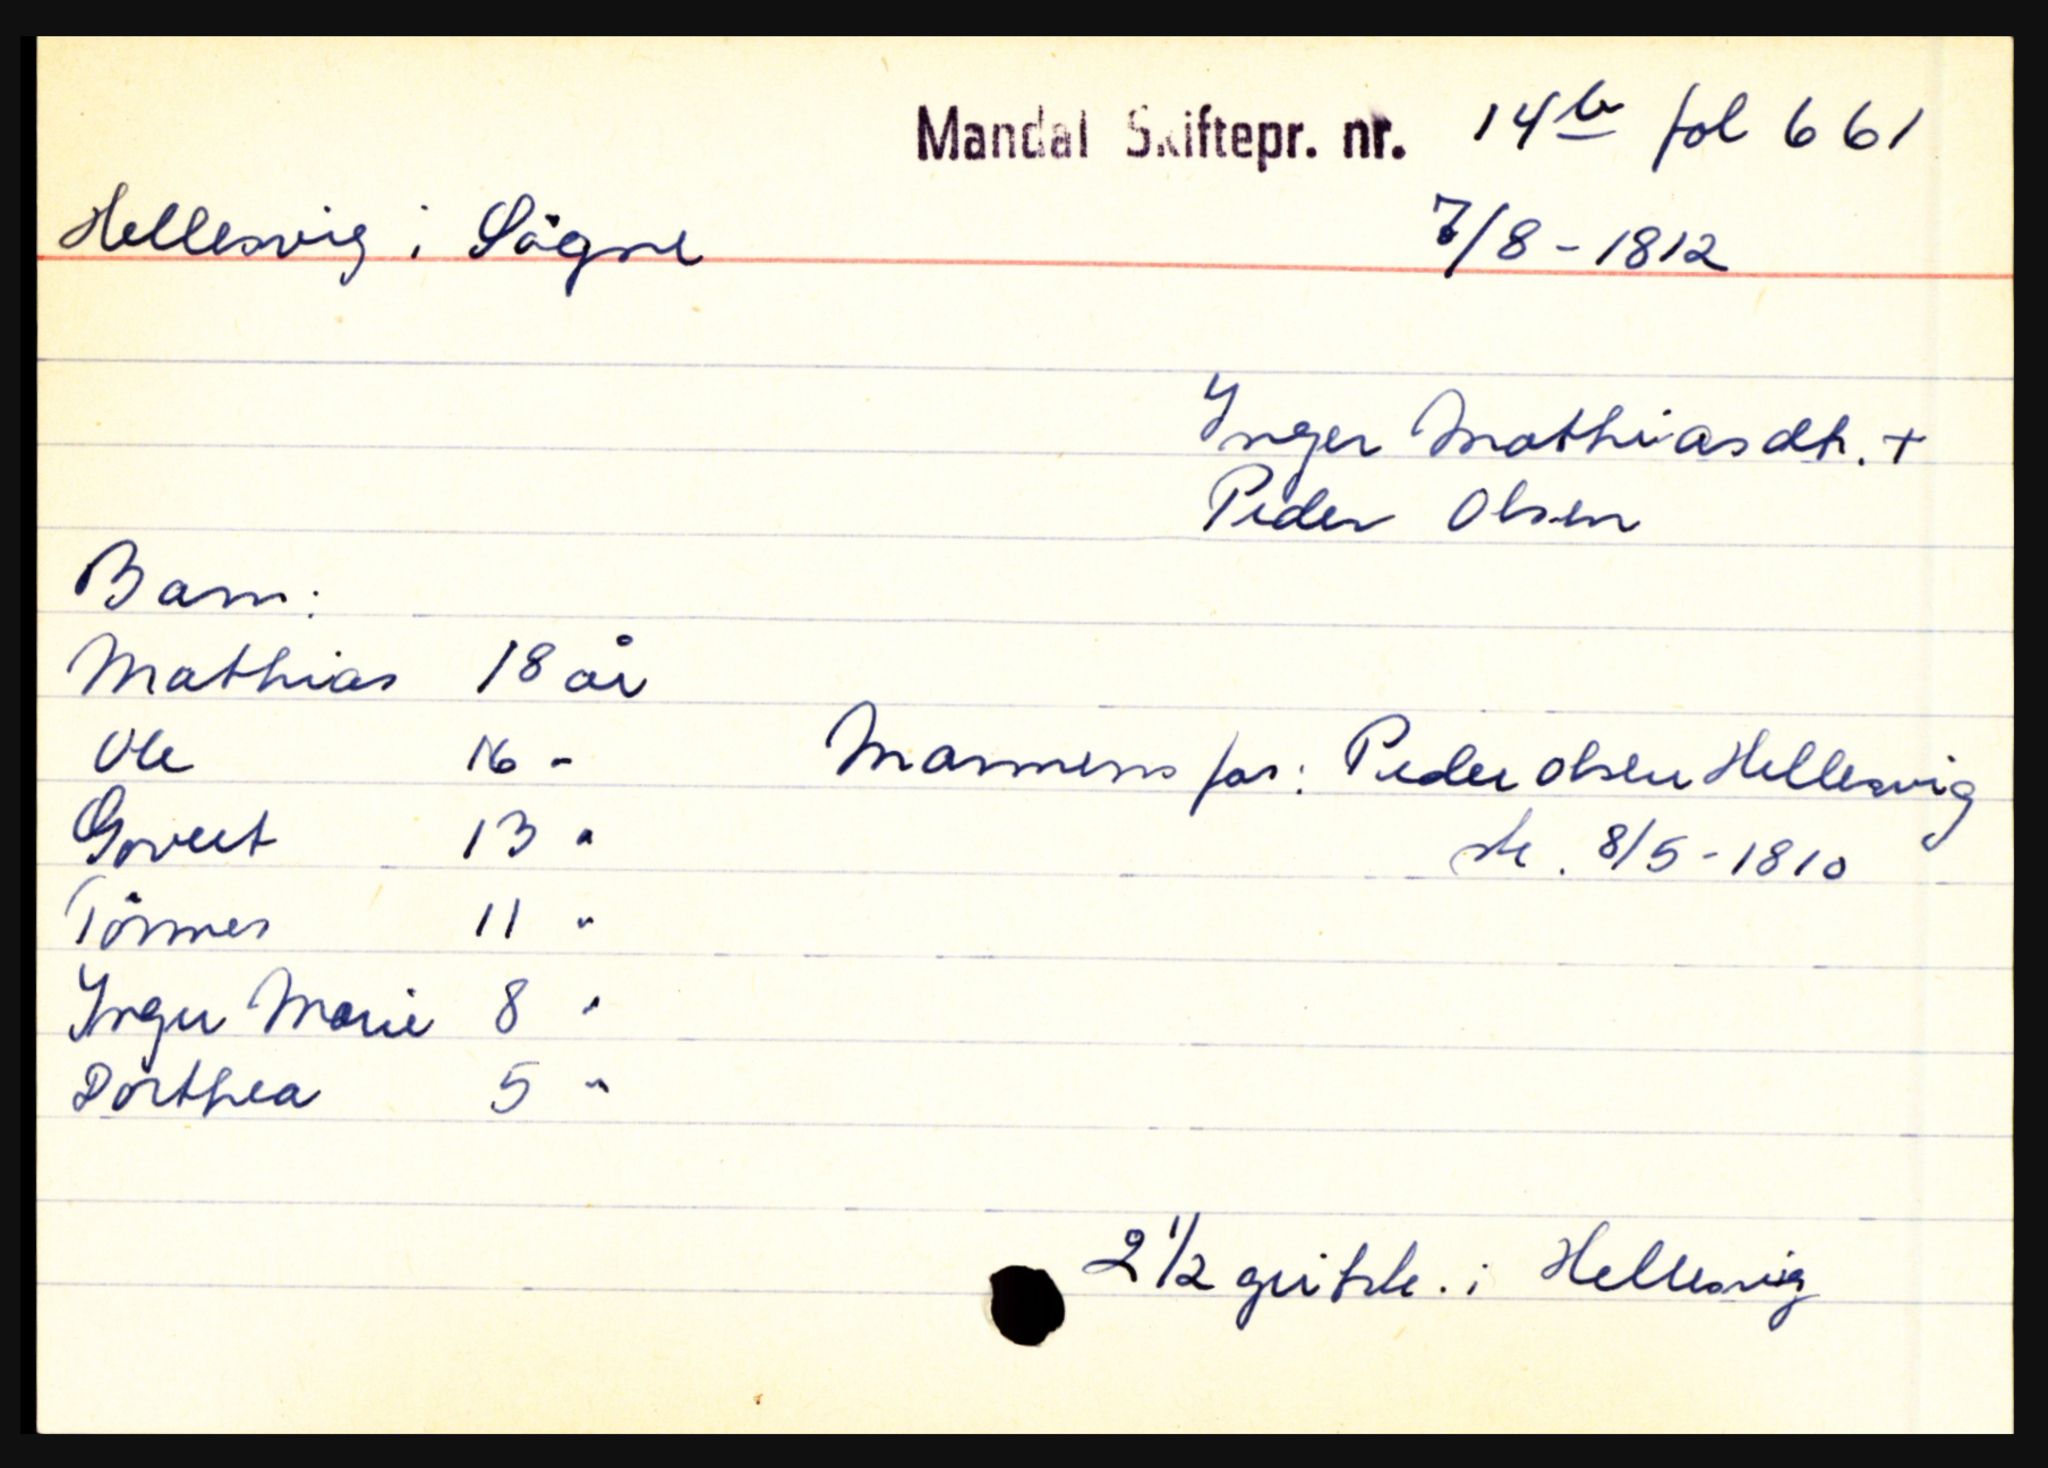 Mandal Skiftepr. nr. 14b fol 661
Hellesvig i Sögne 7/8-1812
Inger Mathiasdtr. +
Peder Olsen
Barn:
Mathias 18 år
Ole 16 -
Mannens far: Peder Olsen Hellesvig
Govert 13 "
sk. 8/5-1810
Tönnes 11 "
Inger Marie 8 "
Dorthea 5 "
2 1/2 gritsle. i Hellesvig